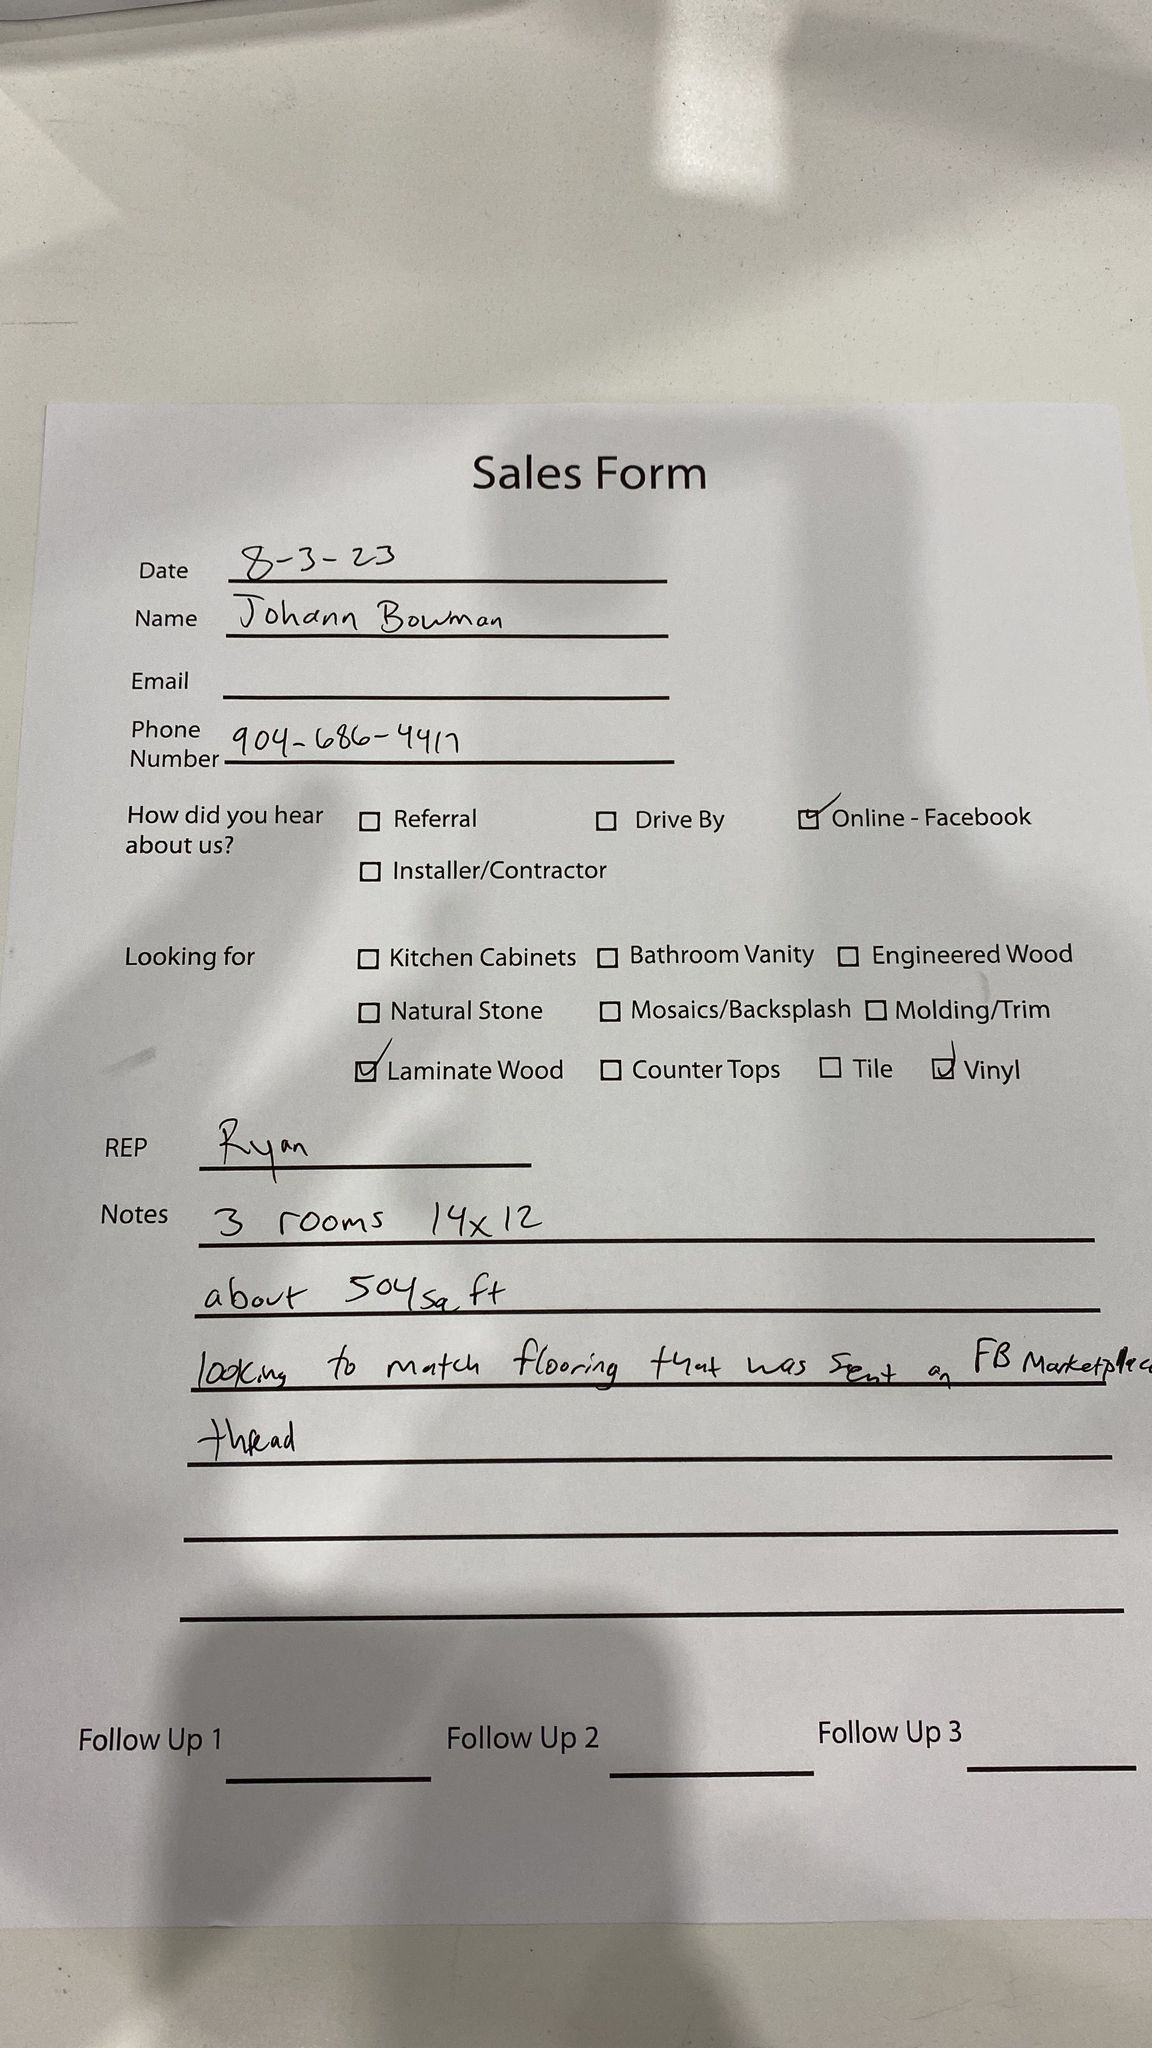 Sales Form
Date 8-3-23
Name Johann Bowman
Email
Phone
Number 904-686-4417
How did you hear
about us?
Referral Drive By Online - Facebook
Installer/Contractor
Looking for Kitchen Cabinets Bathroom Vanity Engineered Wood
Natural Stone Mosaics/Backsplash Molding/Trim
Laminate Wood Counter Tops Tile Vinyl
REP Ryan
Notes 3 rooms 14x12
about 504 sq ft
looking to match flooring that was sent on FB Marketplace
thread
Follow Up 1 Follow Up 2 Follow Up 3